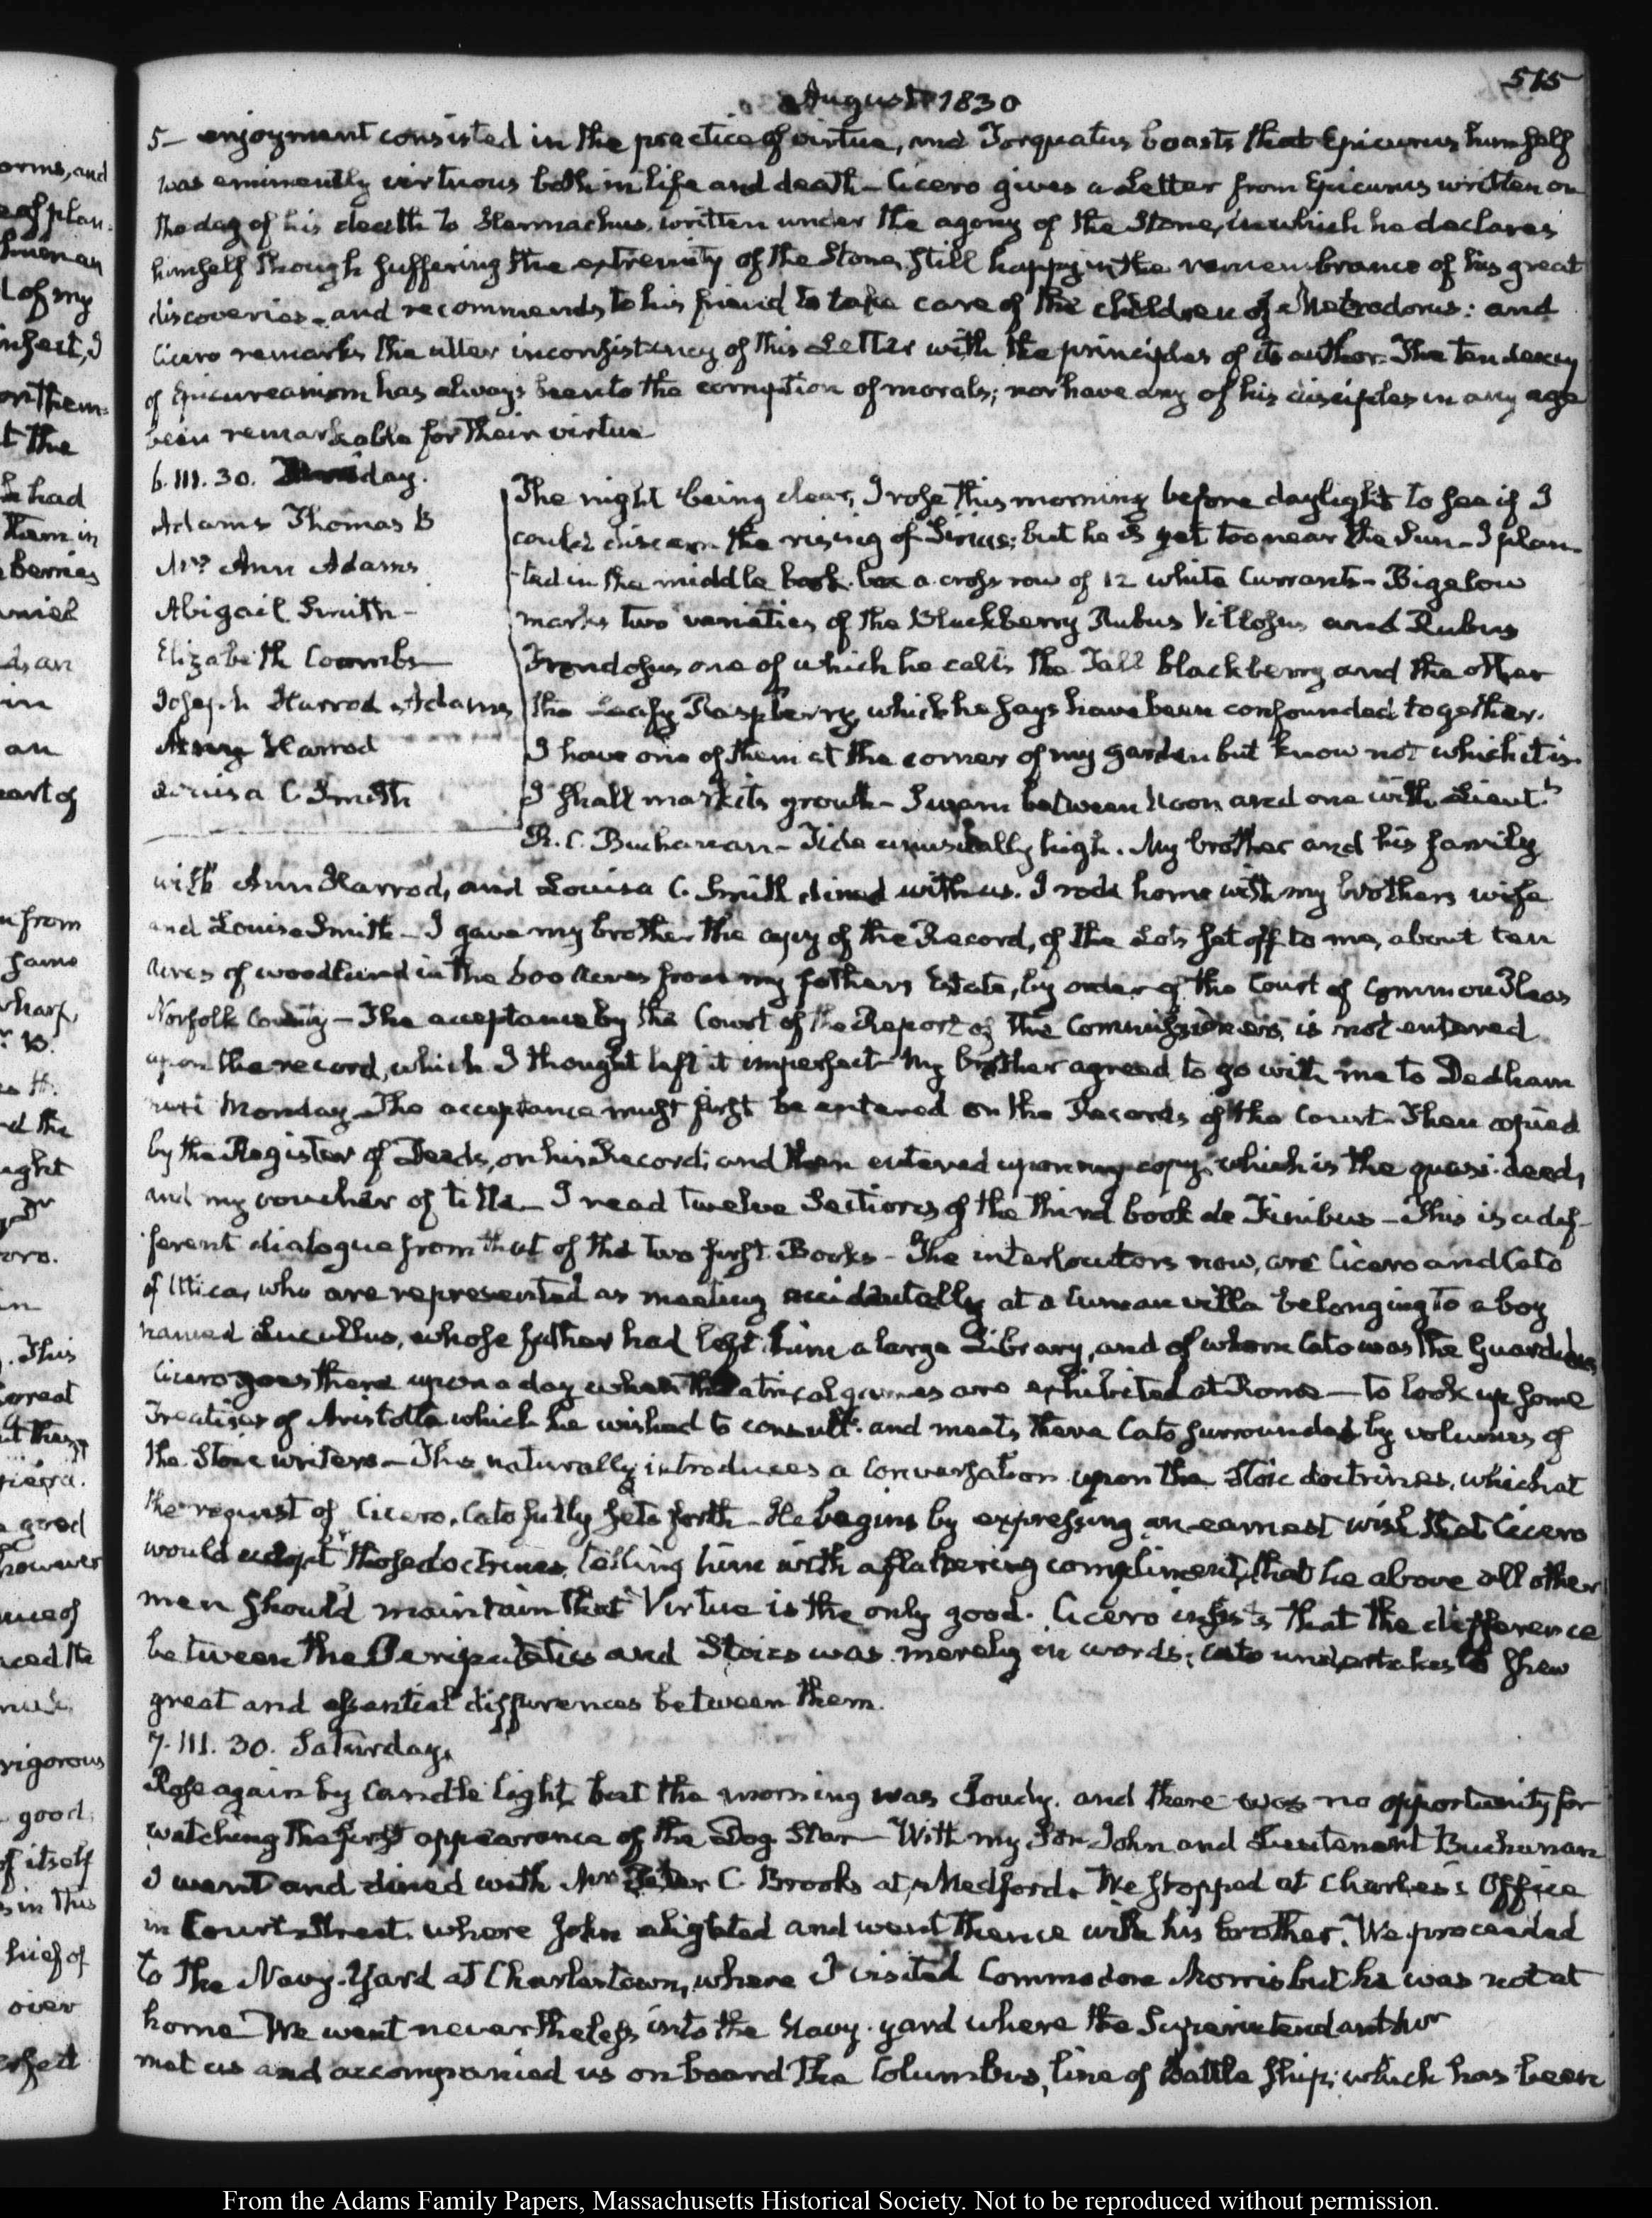 515
August 1830
5— enjoyment consisted in the practice of virtue, and Torquatus boasts that Epicurus himself
was eminently virtuous both in life and death— Cicero gives a Letter from Epicurus written on
the day of his death to Hermachus, written under the agony of the Stone, in which he declares
himself though suffering the extremity of the Stone, still happy in the remembrance of his great
discoveries— and recommends to his friend to take care of the children of Metrodorus: and
Cicero remarks the utter inconsistency of this Letter with the principles of its author. The tendency
of Epicureanism has always been to the corruption of morals; nor have any of his disciples in any age
been remarkable for their virtue
6. III. 30. day.
Adams Thomas B
Mrs Ann Adams
Abigail Smith—
Elizabeth Coombs—
Joseph Harrod Adams
Harrod
Louisa C. Smith
The night being clear, I rose this morning before daylight to see if I
could discern the rising of Sirius; but he is yet too near the Sun— I plan-
ted in the middle box a cross row of 12 white Currants— Bigelow
marks two varieties of the Blackberry Rubus Villosus and Rubus
Frondosus one of which he calls the Tall blackberry and the other
the Leafy Raspberry, which he says have been confounded together.
I have one of them at the corner of my garden but know not which it is.
I shall mark its growth— Swam between Noon and one with Lieutt
R. C. Buchanan— Tide unusually high. My brother and his family
with Ann Harrod, and Louisa C. Smith dined with us. I rode home with my brothers wife
and Louisa Smith— I gave my brother the copy of the Record, of the Lots set off to me, about ten
Acres of woodland in the 600 Acres from my fathers Estate, by order of the Court of Common Pleas
Norfolk County— The acceptance by the Court of the Report of the Commissioners, is not entered
upon the record, which I thought left it imperfect— My brother agreed to go with me to Dedham
next Monday— The acceptance must first be entered on the Records of the Court— Then copied
by the Register of Deeds, on his Record; and then entered upon my copy, which is the quasi-deed,
and my voucher of title— I read twelve Sections of the third book de Finibus— This is a dif-
ferent dialogue from that of the two first Books— The interlocutors now, are Cicero and Cato
of Utica, who are represented as meeting accidentally at a Cuman villa belonging to a boy
named Lucullus, whose father had left him a large Library, and of whom Cato was the Guardian
Cicero goes there upon a day when theatrical games are exhibited at Rome— to look up some
Treatises of Aristotle which he wished to consult. and meets there Cato surrounded by volumes of
the Stoic writers— This naturally introduces a Conversation upon the Stoic doctrines, which at
the request of Cicero, Cato fully sets forth— He begins by expressing an earnest wish that Cicero
would adopt those doctrines, telling him with a flattering compliment, that he above all other
men should maintain that Virtue is the only good. Cicero insists that the difference
between the Peripatetics and Stoics was merely in words; Cato undertakes to shew
great and essential differences between them.
7. III. 30. Saturday.
Rose again by Candle light, but the morning was Cloudy, and there was no opportunity for
watching the first appearance of the Dog Star— With my Son John and Lieutenant Buchanan
I went and dined with Mr Peter C. Brooks at Medford. We stopped at Charles's Office
in Court Street, where John alighted and went thence with his brother. We proceeded
to the Navy-Yard at Charlestown, where I visited Commodore Morris but he was not at
home— We went nevertheless into the Navy-yard where the Superintendant
met us and accompanied us on board the Columbus, line of Battle Ship; which has been
From the Adams Family Papers, Massachusetts Historical Society. Not to be reproduced without permission.